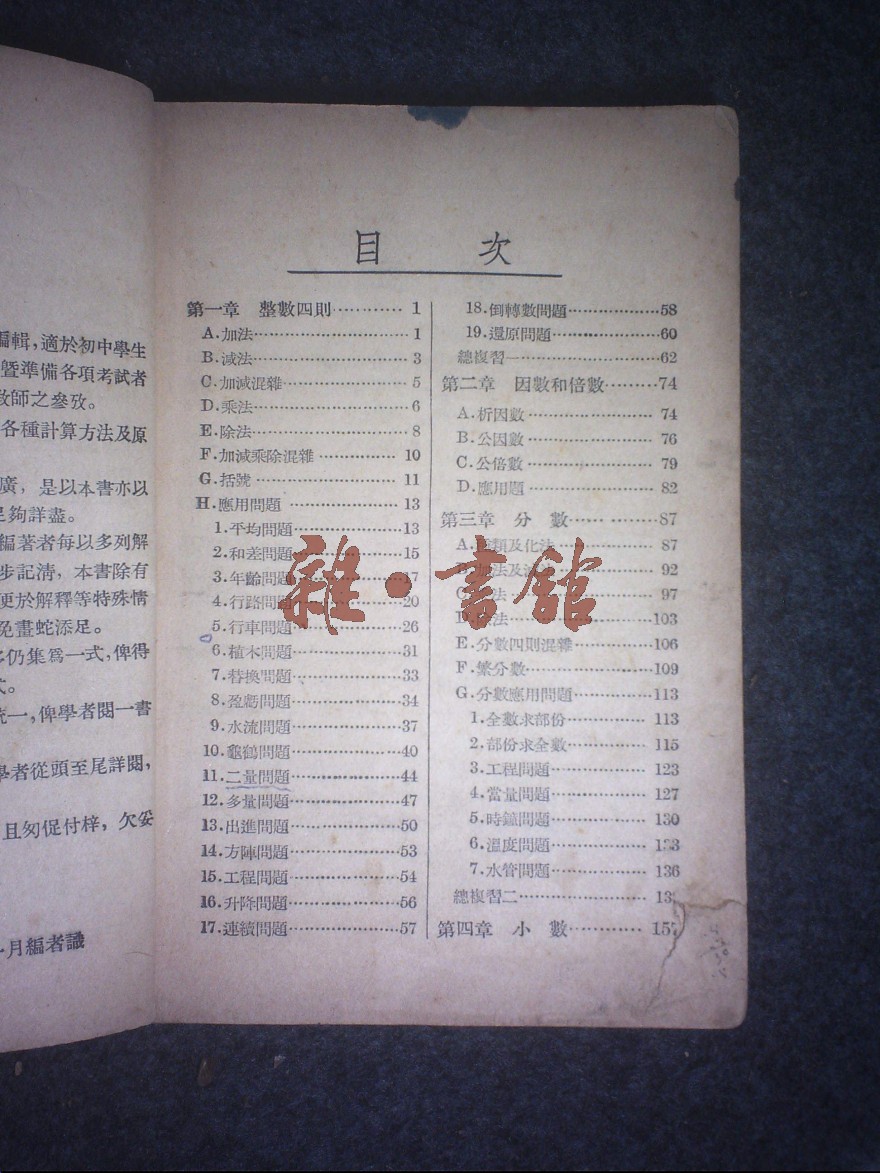 編輯，適於初中學生
暨準備各項考試者
教師之參攷。
各種計算方法及原
廣，是以本書亦以
足夠詳盡。
編著者每以多列解
步記清，本書除有
更於解釋等特殊情
免畫蛇添足。
仍集爲一式，俾得
式。
統一，俾學者閱一書
學者從頭至尾詳閱，
且匆促付梓，欠妥
月編者識
目次
第一章 整數四則············ 1
A.加法············ 1
B.減法············ 3
C.加減混雜············ 5
D.乘法············ 6
E.除法············ 8
F.加減乘除混雜············ 10
G.括號············ 11
H.應用問題············ 13
1.平均問題············13
2.和差問題············15
3.年齡問題············17
4.行路問題············20
5.行車問題············26
6.植木問題············31
7.替換問題············33
8.盈虧問題············34
9.水流問題············37
10.龜鶴問題············40
11.二量問題············44
12.多量問題············47
13.出進問題············50
14.方陣問題············53
15.工程問題············54
16.升降問題············56
17.連續問題············57
18.倒轉數問題············58
19.還原問題············60
總複習一············62
第二章 因數和倍數········74
A.析因數············ 74
B.公因數············ 76
C.公倍數············ 79
D.應用題············ 82
第三章 分數············87
A.種類及化法············ 87
B.加法及減法············ 92
C.乘法············ 97
D.除法············103
E.分數四則混雜············106
F.繁分數············109
G.分數應用問題············113
1.全數求部份············113
2.部份求全數············115
3.工程問題············123
4.當量問題············127
5.時鐘問題············130
6.溫度問題············133
7.水管問題············136
總複習二············13
第四章 小數············157
雜·書館